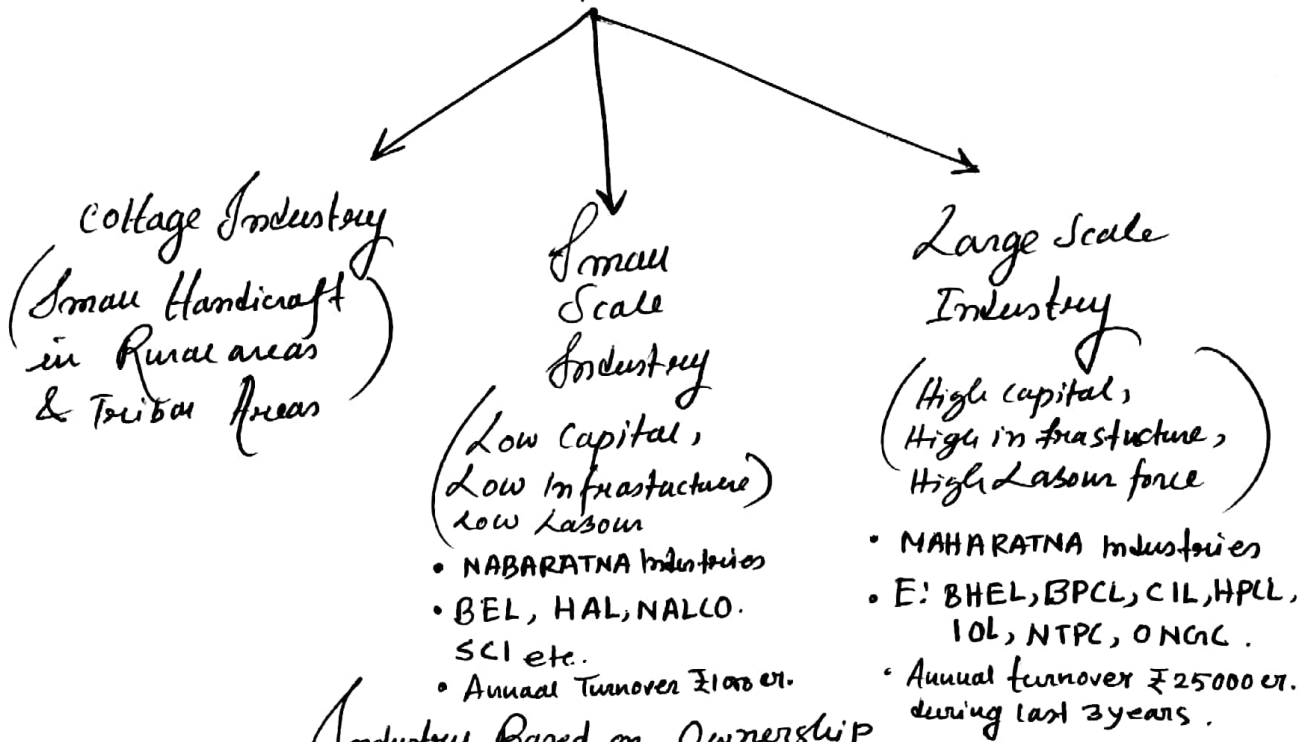 Cottage Industry
(Small Handicraft
in Rural areas
& Tribal Areas)
Small
Scale
Industry
(Low Capital,
Low Infrastacture)
Low Labour
• NABARATNA Industries
• BEL, HAL, NALCO.
SCI etc.
• Annual Turnover ₹1000 cr.
Large Scale
Industry
(High capital,
High infrastucture,
High Labour force)
• MAHARATNA Industries
• E: BHEL, BPCL, CIL, HPCL,
IOL, NTPC, ONGC.
• Annual turnover ₹25000 cr.
during last 3 years.
Industry Based on Ownership